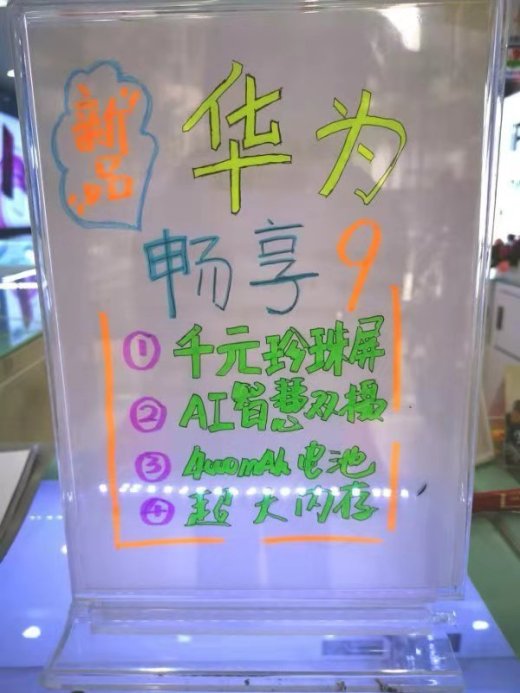 新品
华为
畅享9
① 千元珍珠屏
② AI智慧双摄
③ 4000mAh电池
④ 超大内存